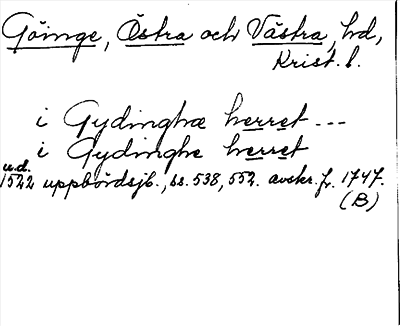 Göinge, Östra och Västra, hd,
Krist. l.
i Gydinghæ herret ---
i Gydinghe herret
u.d.
1522 uppbördsjb., ss. 538, 552. avskr. fr. 1747.
(B)